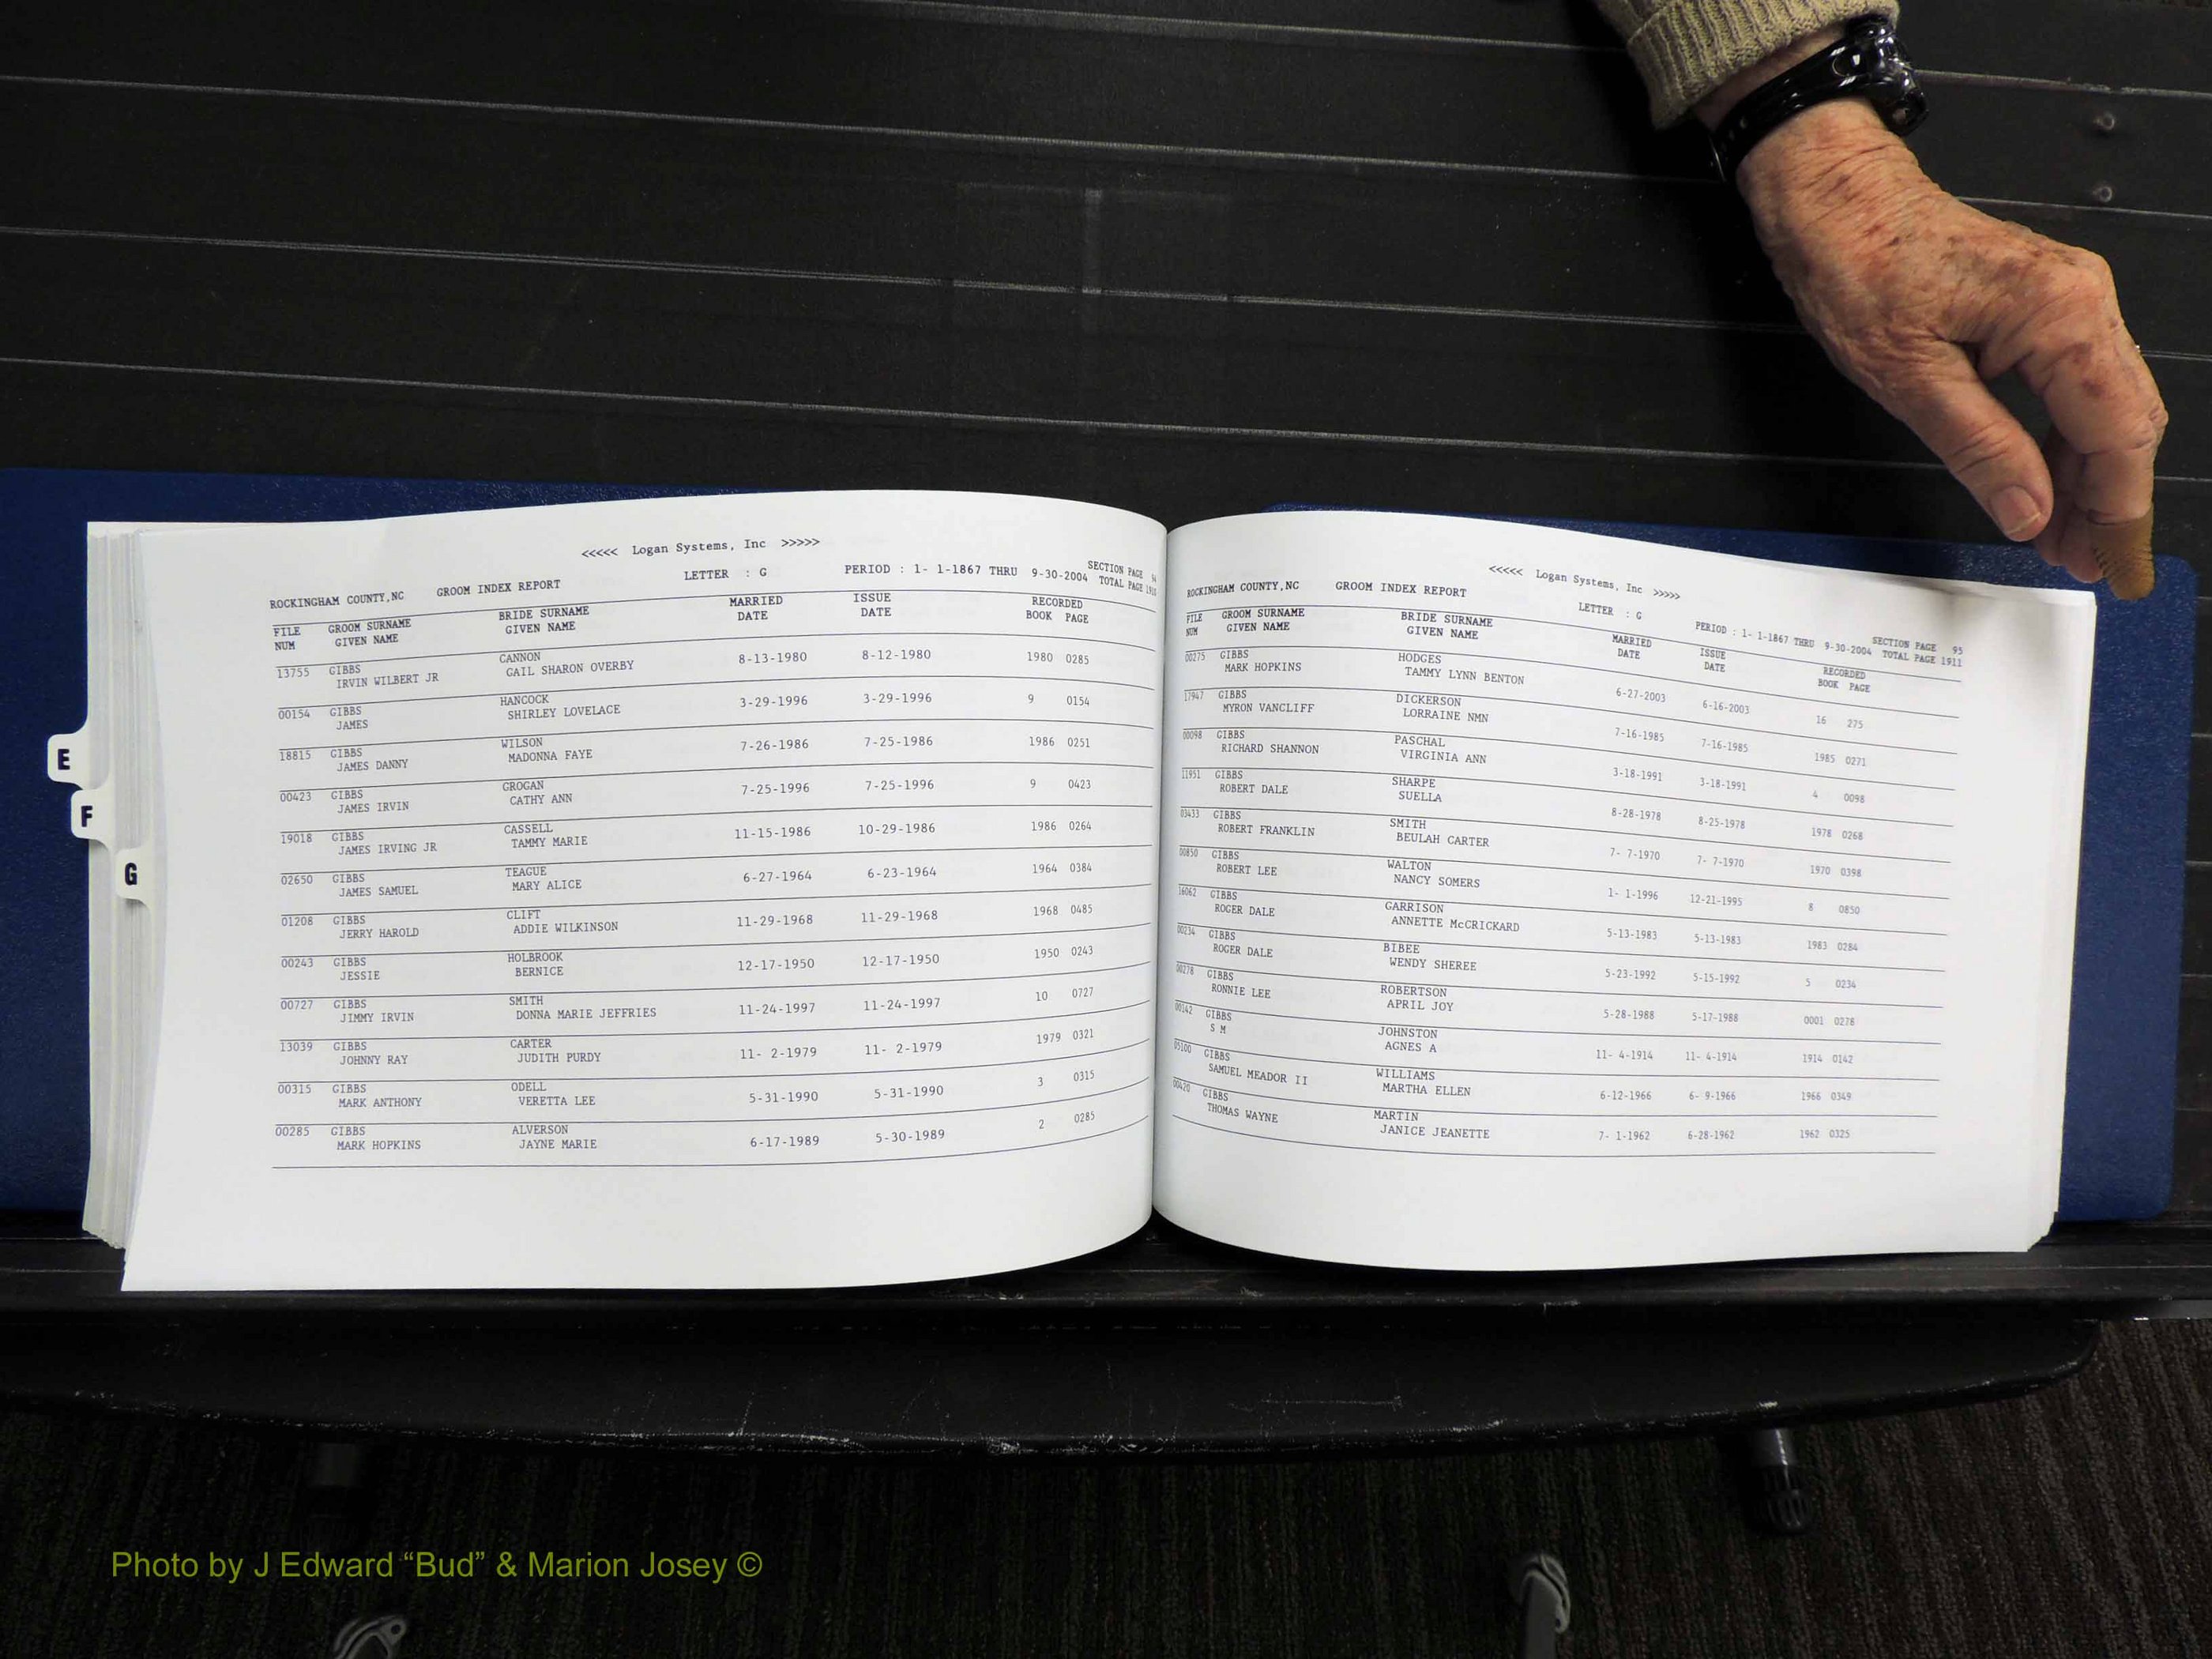 <<<<< Logan Systems, Inc >>>>>
ROCKINGHAM COUNTY,NC GROOM INDEX REPORT LETTER : G PERIOD : 1- 1-1867 THRU 9-30-2004 SECTION PAGE 94
TOTAL PAGE
FILE GROOM SURNAME BRIDE SURNAME MARRIED ISSUE RECORDED
NUM GIVEN NAME GIVEN NAME DATE DATE BOOK PAGE
13755 GIBBS CANNON 8-13-1980 8-12-1980 1980 0285
IRVIN WILBERT JR GAIL SHARON OVERBY
00154 GIBBS HANCOCK 3-29-1996 3-29-1996 9 0154
JAMES SHIRLEY LOVELACE
18815 GIBBS WILSON 7-26-1986 7-25-1986 1986 0251
JAMES DANNY MADONNA FAYE
00423 GIBBS GROGAN 7-25-1996 7-25-1996 9 0423
JAMES IRVIN CATHY ANN
19018 GIBBS CASSELL 11-15-1986 10-29-1986 1986 0264
JAMES IRVING JR TAMMY MARIE
02650 GIBBS TEAGUE 6-27-1964 6-23-1964 1964 0384
JAMES SAMUEL MARY ALICE
01208 GIBBS CLIFT 11-29-1968 11-29-1968 1968 0485
JERRY HAROLD ADDIE WILKINSON
00243 GIBBS HOLBROOK 12-17-1950 12-17-1950 1950 0243
JESSIE BERNICE
00727 GIBBS SMITH 11-24-1997 11-24-1997 10 0727
JIMMY IRVIN DONNA MARIE JEFFRIES
13039 GIBBS CARTER 11- 2-1979 11- 2-1979 1979 0321
JOHNNY RAY JUDITH PURDY
00315 GIBBS ODELL 5-31-1990 5-31-1990 3 0315
MARK ANTHONY VERETTA LEE
00285 GIBBS ALVERSON 6-17-1989 5-30-1989 2 0285
MARK HOPKINS JAYNE MARIE
E
F
G
<<<<< Logan Systems, Inc >>>>>
ROCKINGHAM COUNTY,NC GROOM INDEX REPORT LETTER : G PERIOD : 1- 1-1867 THRU 9-30-2004 SECTION PAGE 95
TOTAL PAGE 1911
FILE GROOM SURNAME BRIDE SURNAME MARRIED ISSUE RECORDED
NUM GIVEN NAME GIVEN NAME DATE DATE BOOK PAGE
00275 GIBBS HODGES 6-27-2003 6-16-2003 16 275
MARK HOPKINS TAMMY LYNN BENTON
17947 GIBBS DICKERSON 7-16-1985 7-16-1985 1985 0271
MYRON VANCLIFF LORRAINE NMN
00098 GIBBS PASCHAL 3-18-1991 3-18-1991 4 0098
RICHARD SHANNON VIRGINIA ANN
11951 GIBBS SHARPE 8-28-1978 8-25-1978 1978 0268
ROBERT DALE SUELLA
03433 GIBBS SMITH 7- 7-1970 7- 7-1970 1970 0398
ROBERT FRANKLIN BEULAH CARTER
00850 GIBBS WALTON 1- 1-1996 12-21-1995 8 0850
ROBERT LEE NANCY SOMERS
16062 GIBBS GARRISON 5-13-1983 5-13-1983 1983 0284
ROGER DALE ANNETTE McCRICKARD
00234 GIBBS BIBEE 5-23-1992 5-15-1992 5 0234
ROGER DALE WENDY SHEREE
00278 GIBBS ROBERTSON 5-28-1988 5-17-1988 0001 0278
RONNIE LEE APRIL JOY
00142 GIBBS JOHNSTON 11- 4-1914 11- 4-1914 1914 0142
S M AGNES A
05100 GIBBS WILLIAMS 6-12-1966 6- 9-1966 1966 0349
SAMUEL MEADOR II MARTHA ELLEN
00420 GIBBS MARTIN 7- 1-1962 6-28-1962 1962 0325
THOMAS WAYNE JANICE JEANETTE
Photo by J Edward “Bud” & Marion Josey ©